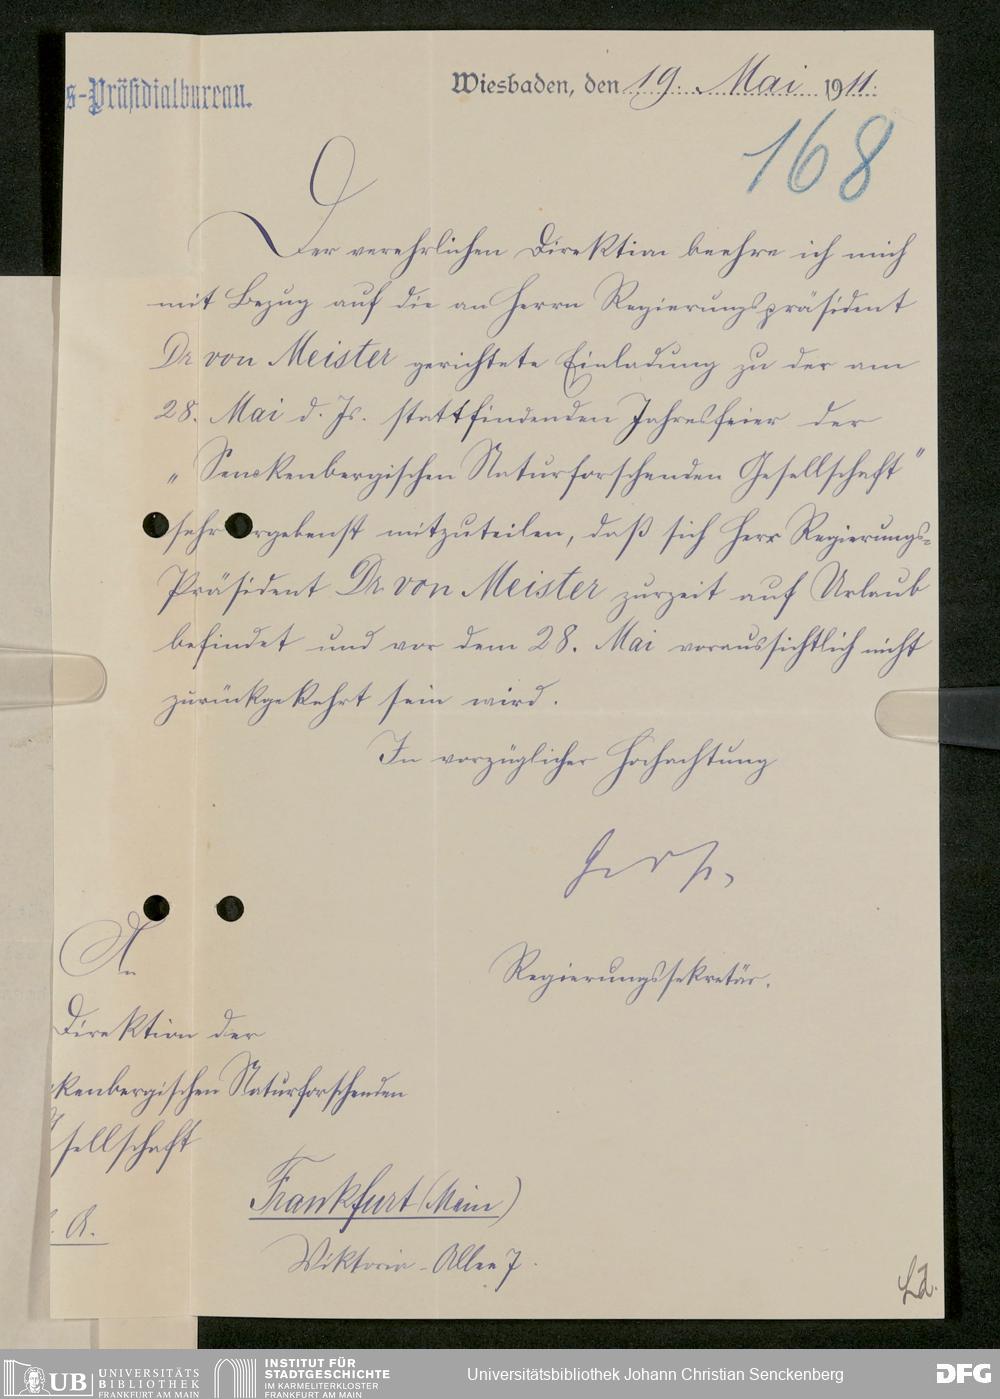 s-Präsidialbureau.
Wiesbaden, den 19. Mai 1911.
168
Der verehrlichen Direktion beehre ich mich
mit Bezug auf die an Herrn Regierungspräsident
Dr von Meister gerichtete Einladung zu der am
28. Mai d. Js. stattfindenden Jahresfeier der
"Senckenbergischen Naturforschenden Gesellschaft"
sehr ergebenst mitzuteilen, daß sich Herr Regierungs-
Präsident Dr von Meister zurzeit auf Urlaub
befindet und vor dem 28. Mai voraussichtlich nicht
zurückgekehrt sein wird.
In vorzüglicher Hochachtung
Regierungssekretär.
An
Direktion der
kenbergischen Naturforschenden
sellschaft
Frankfurt (Main)
Viktoria-Allee 7.
UB UNIVERSITÄTS
BIBLIOTHEK
FRANKFURT AM MAIN
INSTITUT FÜR
STADTGESCHICHTE
IM KARMELITERKLOSTER
FRANKFURT AM MAIN
Universitätsbibliothek Johann Christian Senckenberg
DFG